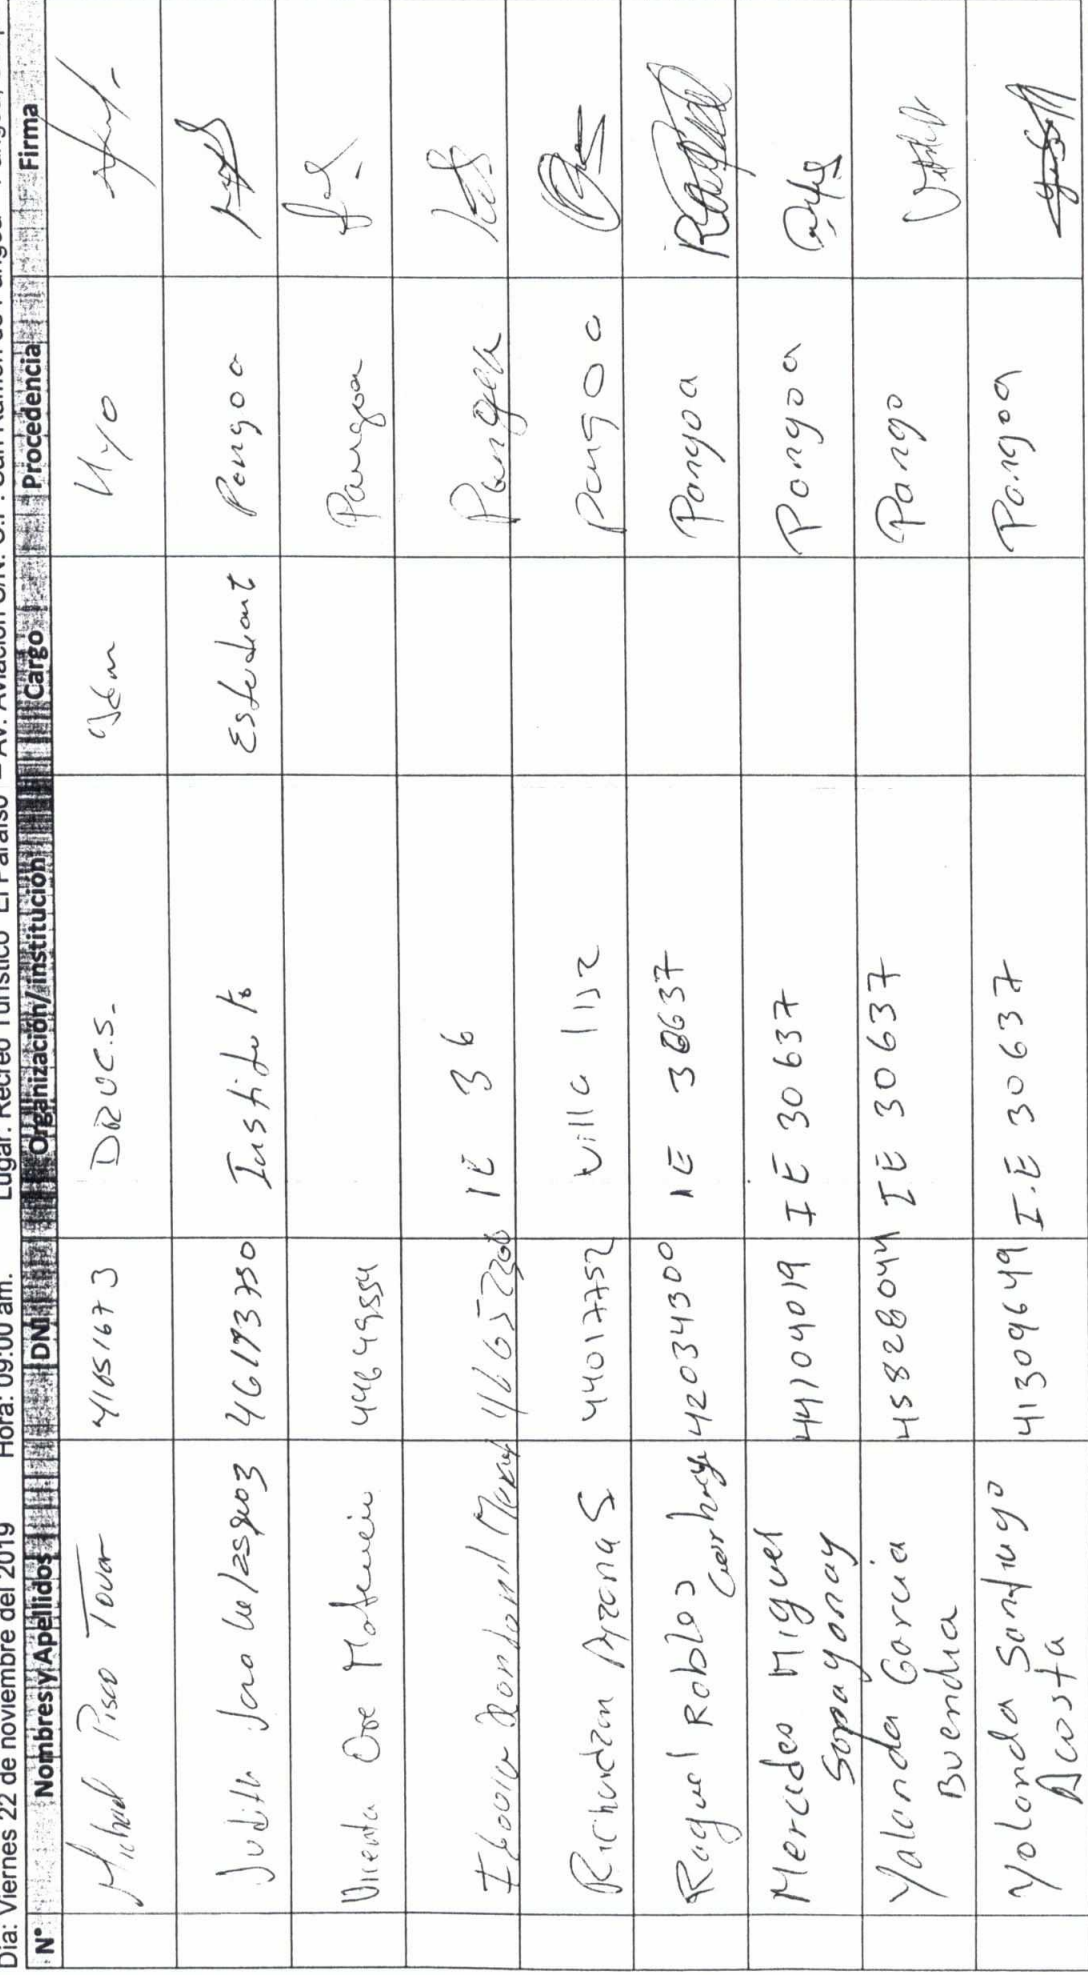 Día: Viernes 22 de noviembre del 2019 Hora: 09:00 am. Lugar: Recreo Turístico "El Paraíso" – Av. Aviación S/N. C.P. San Ramón de Pangoa – Pangoa,
N° Nombres y Apellidos DNI Organización/institución Cargo Procedencia Firma
Michael Pisco Tovar 41051673 DRVCS. Hyo
Judith Jara Velasquez 46193750 Instituto Estudiant Pangoa
Vicenta Ore Matencio 44649554 Pangoa
IE 36 Pangoa
Richardzon Arzona S 44017752 Villa Pangoa
Raquel Robles 42034300 IE 30637 Pangoa
Mercedes Miguel 44104019 IE 30637 Pangoa
Sopayonay
Yolanda Garcia 45828044 IE 30637 Pango
Buendia
Yolanda Santiago 41309649 I.E 30637 Pangoa
Acosta